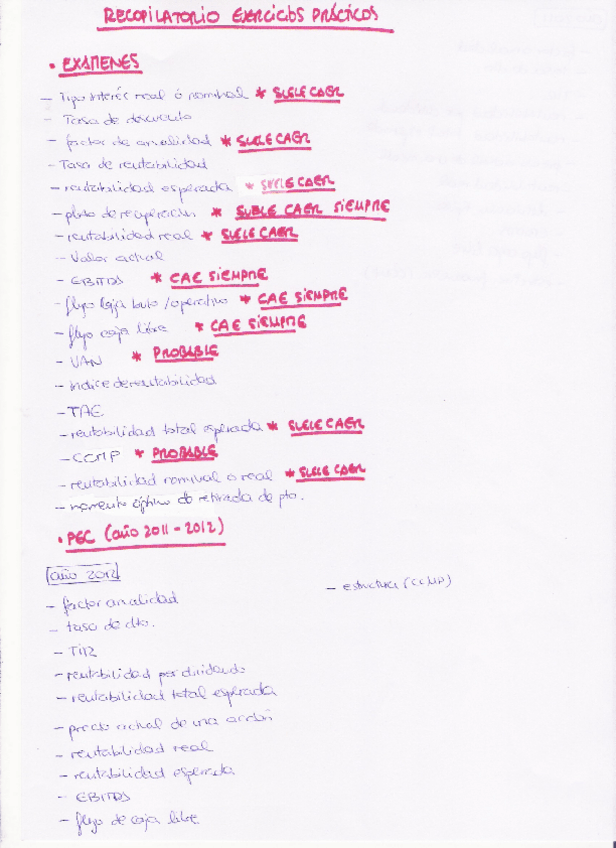 RECOPILATORIO EJERCICIOS PRÁCTICOS
• EXÁMENES
- Tipo interés real o nominal * SUELE CAER
- Tasa de descuento
- factor de anualidad * SUELE CAER
- Tasa de rentabilidad
- rentabilidad esperada * SUELE CAER
- plazo de recuperación * SUELE CAER SIEMPRE
- rentabilidad real * SUELE CAER
- Valor actual
- EBITDS * CAE SIEMPRE
- flujo caja bruto / operativo * CAE SIEMPRE
- flujo caja libre * CAE SIEMPRE
- VAN * PROBABLE
- Indice de rentabilidad
- TAE
- rentabilidad total esperada * SUELE CAER
- CCMP * PROBABLE
- rentabilidad nominal o real * SUELE CAER
- momento óptimo de retirada de pto.
• PEC (año 2011 - 2012)
año 2012
- estructura (CCMP)
- factor anualidad
- tasa de dto.
- TIR
- rentabilidad por dividendo
- rentabilidad total esperada
- precio actual de una acción
- rentabilidad real
- rentabilidad esperada
- EBITDS
- flujo de caja libre